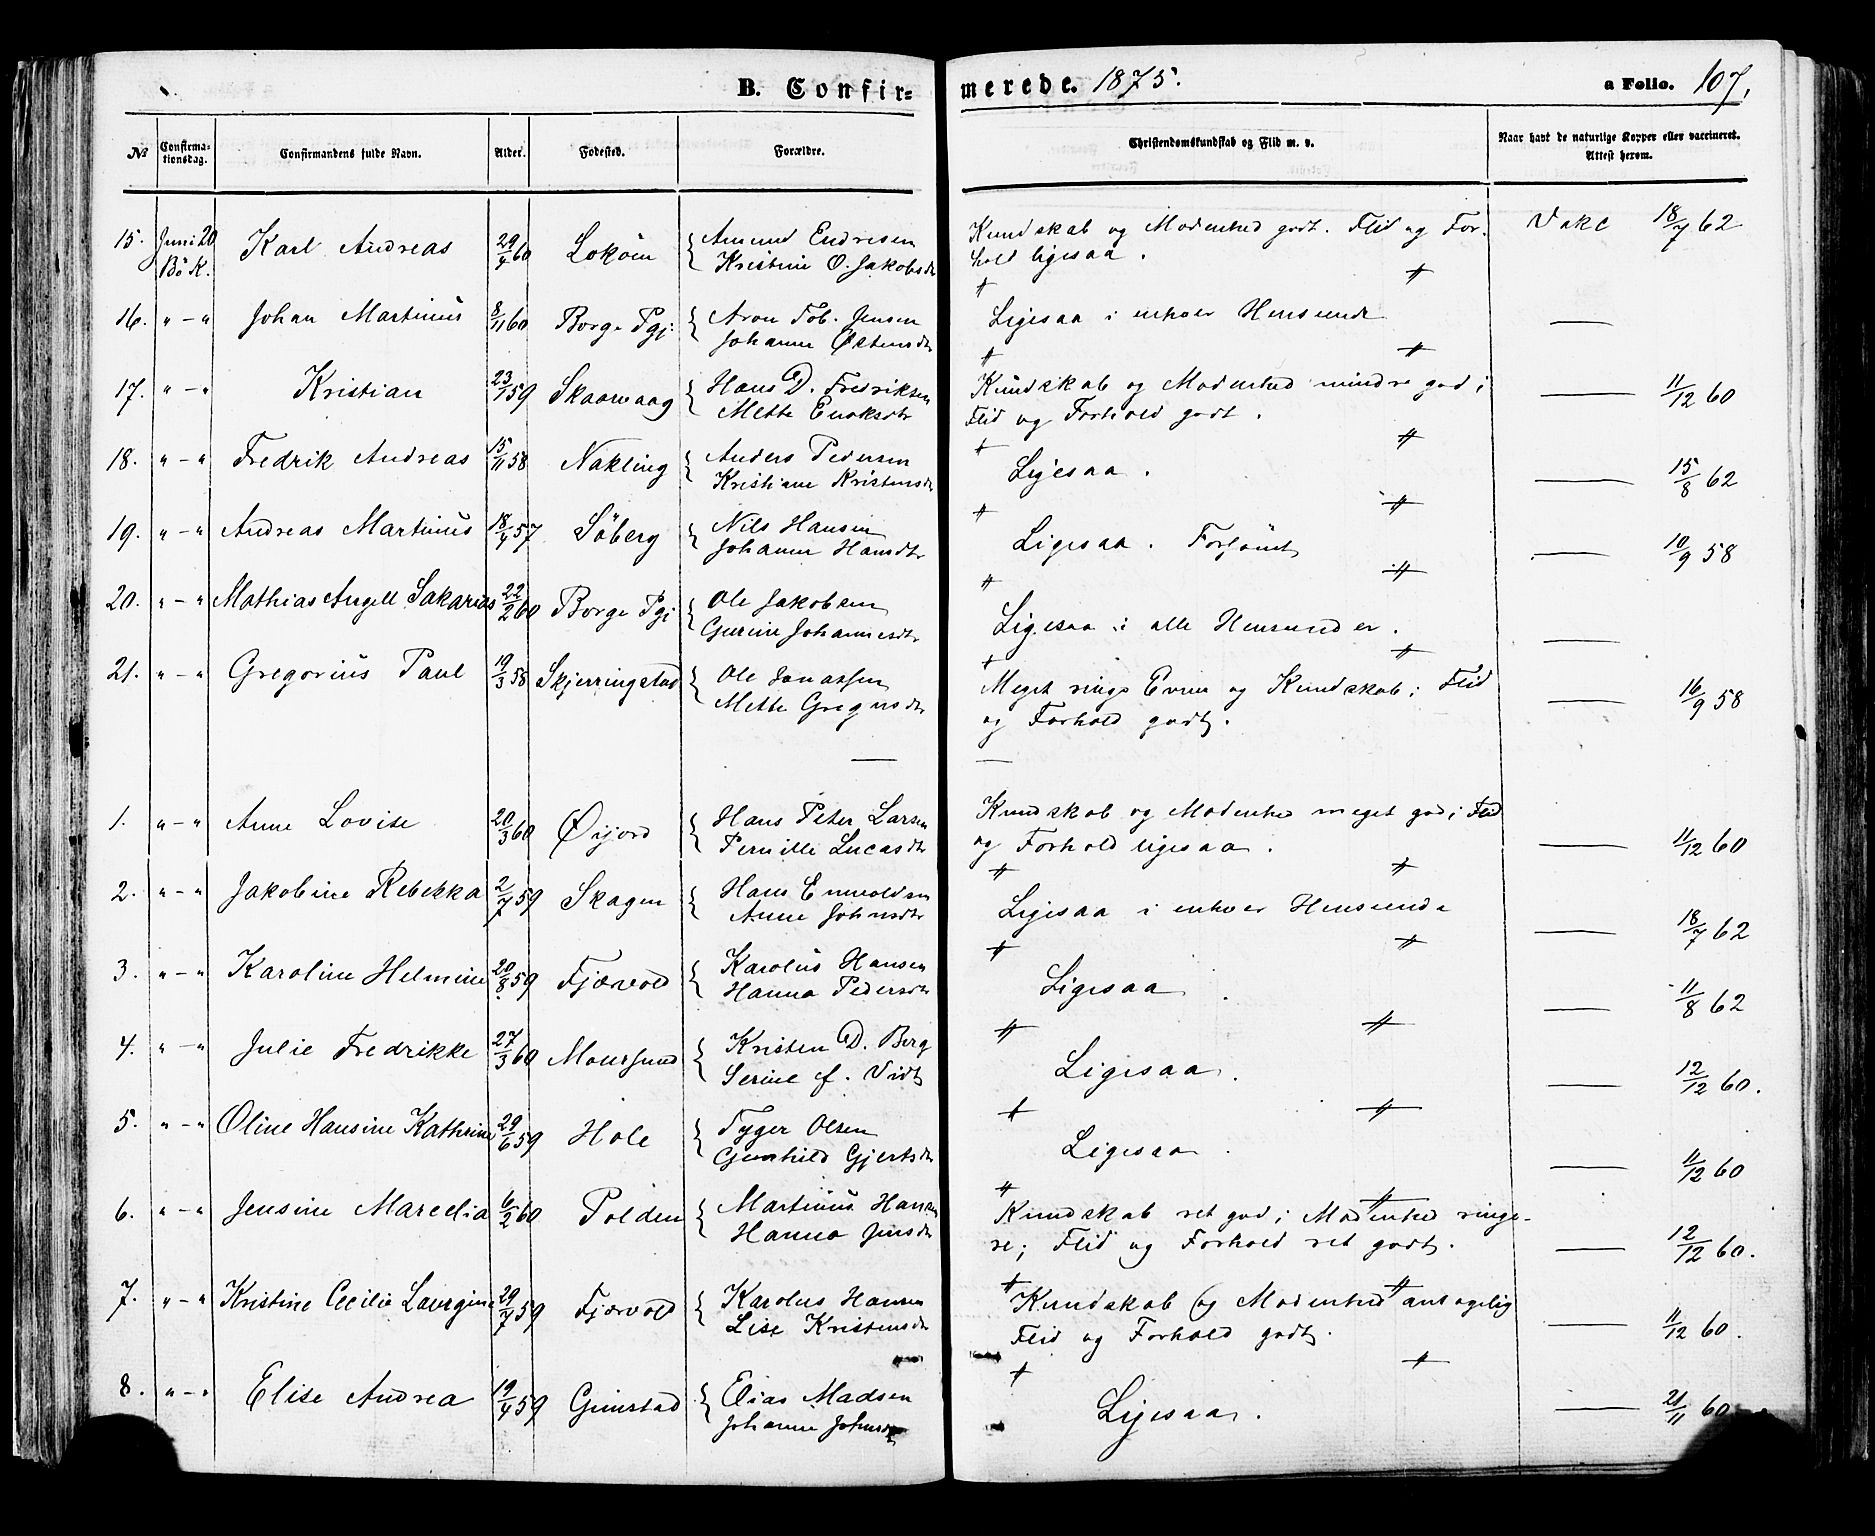 B. Confir=
merede. 1875.
a Folio. 107,
No Confirma-tionsdag. Confirmandens fulde Navn. Alder. Fødested. Forældre. Christendomskundskab og Flid m. v. Naar havt de naturlige Kopper eller vaccineret. Attest herom.
15. Juni 20 Karl Andreas 29/4 60 Lokøen Amund Endresen Kundskab og Modenhed godt. Flid og For- Vakc 18/7 62
Bö K. Kristine O. Jakobsdtr hold ligesaa.
16. " - " Johan Martinus 8/11 60 Borge Pgj. Aron Tob. Jensen Ligesaa i enhver Henseende —
Johanne Østensdtr
17. " - " Kristian 23/1 59 Skaarvaag Hans D. Fredriksen Kundskab og Modenhed mindre god; — 11/12 60
Mette Enoksdtr Flid og Forhold godt.
18. " - " Fredrik Andreas 15/11 58 Nakling Anders Pedersen Ligesaa. — 15/8 62
Kristiane Kristensdtr
19. " - " Andreas Martinus 18/4 57 Söberg Nils Hansen Ligesaa. — 10/9 58
Johanne Hansdtr
20. " - " Mathias Angell Sakarias 22/2 60 Borge Pgj Ole Jakobsen Ligesaa i alle Henseender. —
Gurine Johannesdtr
21. " - " Gregorius Paul 19/3 58 Skjerringstad Ole Jonassen Meget ringe Evne og Kundskab; Flid — 16/9 58
Mette Gregusdtr og Forhold godt.
1. " - " Anne Lovise 20/3 60 Øijord Hans Peter Larsen Kundskab og Modenhed meget god; Flid — 11/12 60
Pernille Lucasdtr og Forhold ligesaa.
2. " - " Jakobine Rebekka 2/7 59 Skagen Hans Enevoldsen Ligesaa i enhver Henseende — 18/7 62
Anne Johnsdtr
3. " - " Karoline Helmine 20/8 59 Fjærvold Karolus Hansen Ligesaa. — 11/8 62
Hanna Pedersdtr
4. " - " Julie Fredrikke 27/3 60 Maursund Kristen D. Berg Ligesaa. — 12/12 60.
Serine f. Vidt
5. " - " Oline Hansine Kathrine 29/6 59 Hole Tyger Olsen Ligesaa. — 11/12 60
Gunhild Gjertsdtr
6. " - " Jensine Marcelia 6/2 60 Polden Martinus Hansen Kundskab ret god; Modenhed ringe- — 12/12 60.
Hanna Jensdtr re; Flid og Forhold ret godt.
7. " - " Kristine Cecilie Lavrgine 29/7 59 Fjærvold Karolus Hansen Kundskab og Modenhed antagelig — 11/12 60.
Lise Kristensdtr Flid og Forhold godt.
8. " - " Elise Andrea 19/4 59 Gimstad Elias Madsen Ligesaa. — 21/11 60
Johanne Johnsdtr